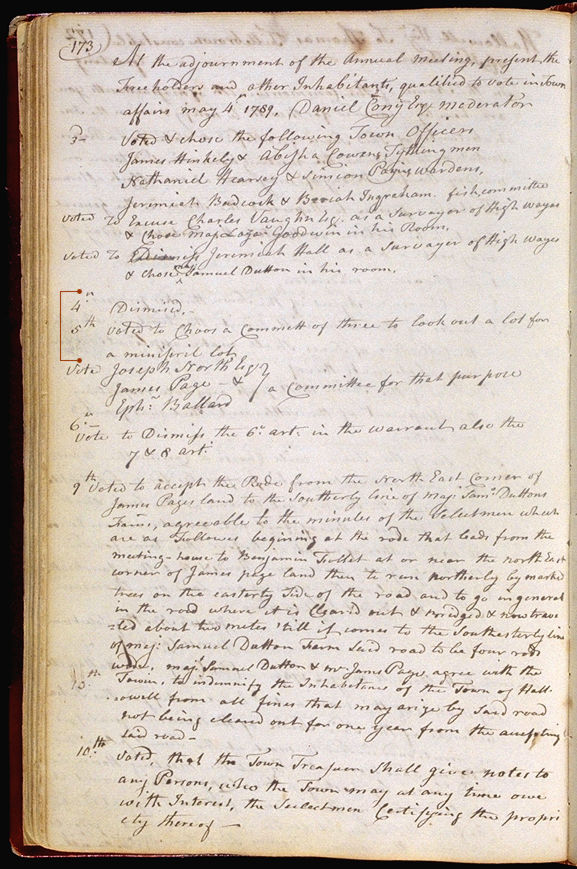 173
At the adjournment of the Annual meeting, present the
Freeholders and other Inhabitants, qualified to vote in Town
affairs may 4 1789, Daniel Cony Esqr moderator
3d Voted & chose the following Town Officers
James Hinkely & Abisha Cowen Tythingmen
Nathaniel Hearsey & Simeon Payn Wardens,
Jeremiah Badcock & Beriah Ingraham. fish committee
voted to Excuse Charles Vaughn Esq. as a Survayer of High wayes
& Chose majr Goodwin in his Room,
voted to Jeremiah Hall as a Survayer of High Wayes
& chose Samuel Dutton in his room,
4 Dismised,
5th voted to Choos a Committ of three to look out a lot for
a ministeril lot,
Vote Joseph North Esqr
James Page - & a Committee for that purpose
Ephm Ballard
6
Vote to Dismiss the 6 art. in the warrant also the
7 & 8 art
9th Voted to accept the Rode from the North East Corner of
James Pages land to the Southerly line of majr Saml Duttons
Farm, agreeable to the minutes of the Selectmen which
are as Followes, begining at the rode that leads from the
meeting-house to Benjamin at or near the north East
corner of James page land then to run northerly by marked
trees on the easterly Side of the road and to go in general
in the road where it is Cleard out & bridged & now trave
led about two metes 'till it comes to the Southesterly line
of majr Samuel Dutton Farm Said road to be four rod
wide, majr Samuel Dutton & mr Jams Page agree with the
Town, to indemnify the Inhabetance of the Town of Hall-
owell from all fines that may arize by Said road
not being cleard out for one year from the
Said road
10th Voted, that the Town Treasurer Shall give notes to
any Persons, who the Town may at any time owe
with Interest, the Selectmen Certifying the propri
ety thereof —